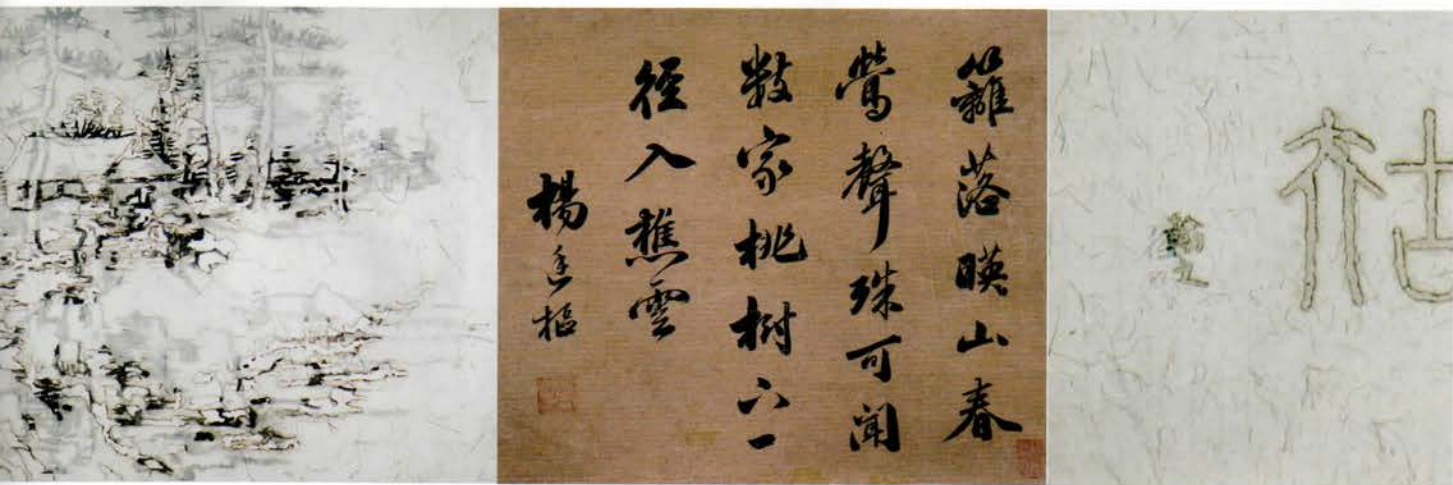 籬落暎山春
鶯聲殊可聞
數家桃樹下一
徑入樵雲
楊